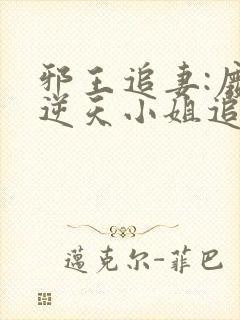 邪王追妻:
逆天小姐追
蒗克尔-菲巴